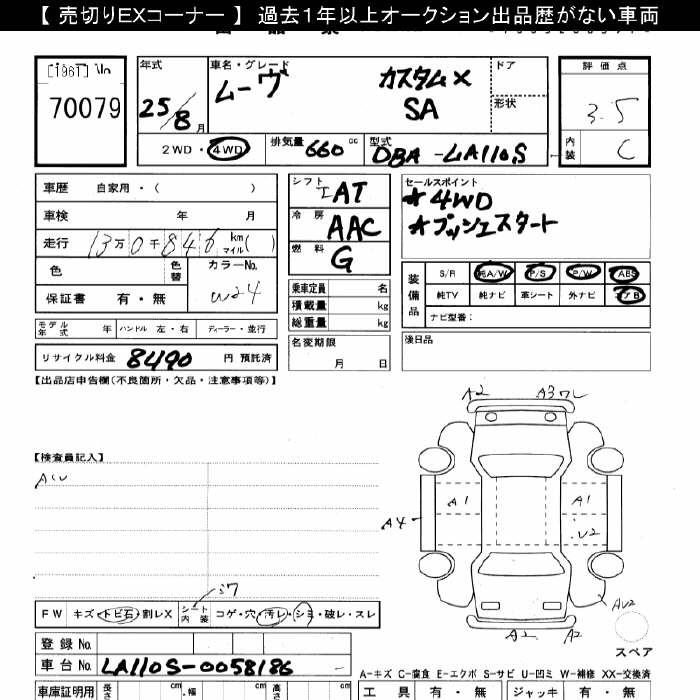 【 売切りEXコーナー 】 過去1年以上オークション出品歴がない車両
70079
年式
25/8 月
車名・グレード
ムーヴ カスタムX
SA
ドア
形状
評価点
3.5
内装
C
2WD・4WD
排気量 660 cc
型式 DBA-LA110S
車歴 自家用・( )
車検 年 月
走行 13万0千846 km マイル( )
色
色替
カラーNo.
W24
保証書 有・無
モデル年式 年 ハンドル 左・右 ディーラー・並行
リサイクル料金 8490 円 預託済
シフト
IAT
冷房
AAC
燃料
G
乗車定員 名
積載量 kg
総重量 kg
名変期限
月 日
セールスポイント
★4WD
★プッシュスタート
装備品
S/R 純A/W P/S P/W ABS
純TV 純ナビ 革シート 外ナビ エアB
ナビ型番：
後日品
【出品店申告欄(不良箇所・欠品・注意事項等)】
【検査員記入】
A2
A3ワレ
A1
A1
A4
U2
AU2
A2
A2
スペア
FW キズ・トビ石・割レX シート内装 コゲ・穴・汚レ・シミ・破レ・スレ
登録No.
車台No. LA110S-0058186
A-キズ C-腐食 E-エクボ S-サビ U-凹ミ W-補修 XX-交換済
車庫証明用 長さ cm 幅 cm 高さ cm
工具 有・無 ジャッキ 有・無